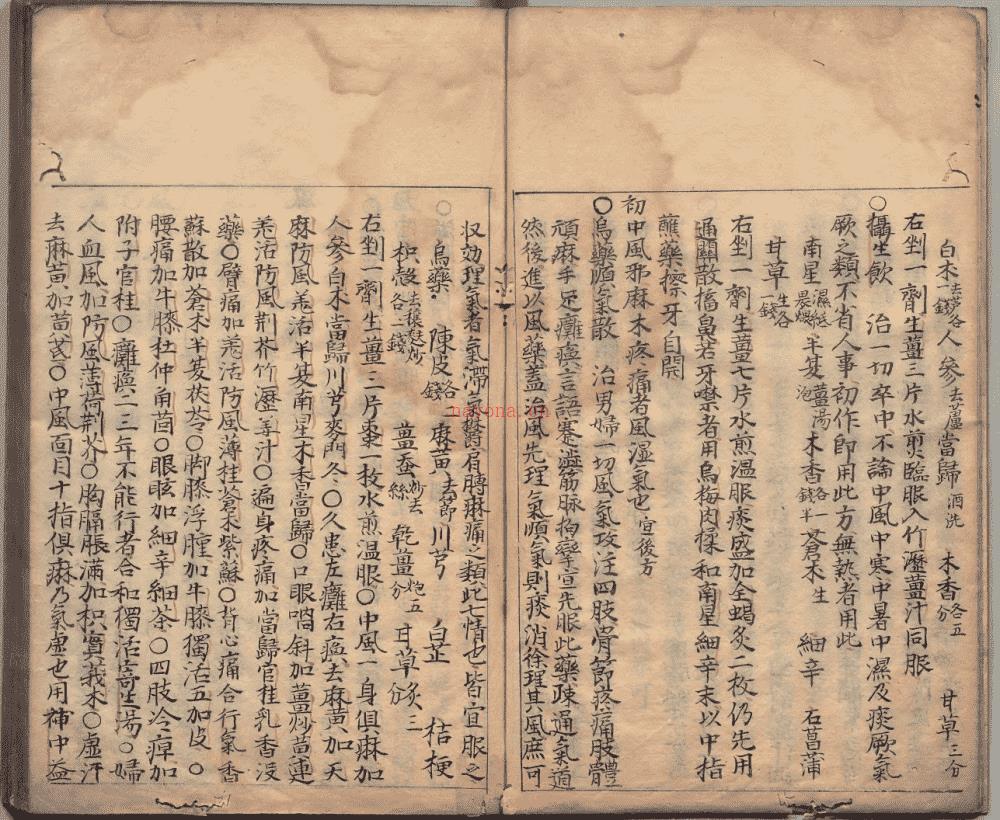 白朮一錢去芦各人參去蘆當歸酒洗 木香各五分 甘草三分
右剉一劑生薑三片水煎臨服入竹瀝薑汁同服
○攝生飲 治一切卒中不論中風中寒中暑中濕及痰厥氣
厥之類不省人事初作即用此方無熱者用此
南星濕紙裹煨半夏薑湯泡木香各一錢半蒼朮生 細辛 石菖蒲
甘草生各錢
右剉一劑生薑七片水煎温服痰盛加全蝎炙二枚仍先用
通關散搐鼻若牙噤者用烏梅肉揉和南星細辛末以中指
蘸藥擦牙自開
初中風邪麻木疼痛者風湿氣也宜後方
○烏藥順氣散 治男婦一切風氣攻注四肢骨節疼痛肢體
頑麻手足癱瘓言語蹇澁筋脉拘攣宜先服此藥疎通氣道
然後進以風藥蓋治風先理氣順氣則痰消徐理其風庶可
収効理氣者氣滯氣鬱肩膊麻痛之類此七情也皆宜服之
烏藥 陳皮各二錢麻黄去節川芎 白芷 桔梗
枳殼去穰麩炒各一錢 薑蚕炒去絲 乾薑炮五分 甘草炙三分
右剉一劑生薑三片棗一枚水煎温服○中風一身俱麻加
人參白朮當歸川芎麥門冬○久患左癱右瘓去麻黄加天
麻防風羌活半夏南星木香當歸○口眼喎斜加薑炒黄連
羌活防風荆芥竹瀝姜汁○遍身疼痛加當歸官桂乳香没
藥○臂痛加羌活防風薄桂蒼朮紫蘇○背心痛合行氣香
蘇散加蒼朮半夏茯苓○脚膝浮腫加牛膝獨活五加皮○
腰痛加牛膝杜仲角茴○眼眩加細辛細茶○四肢冷痺加
附子官桂○癱瘓二三年不能行者合和獨活寄生湯○婦
人血風加防風薄荷荆芥○胸膈脹滿加枳實莪朮○虚汗
去麻黄加黄芪○中風面目十指俱麻乃氣虚也用補中益
nayona.cn